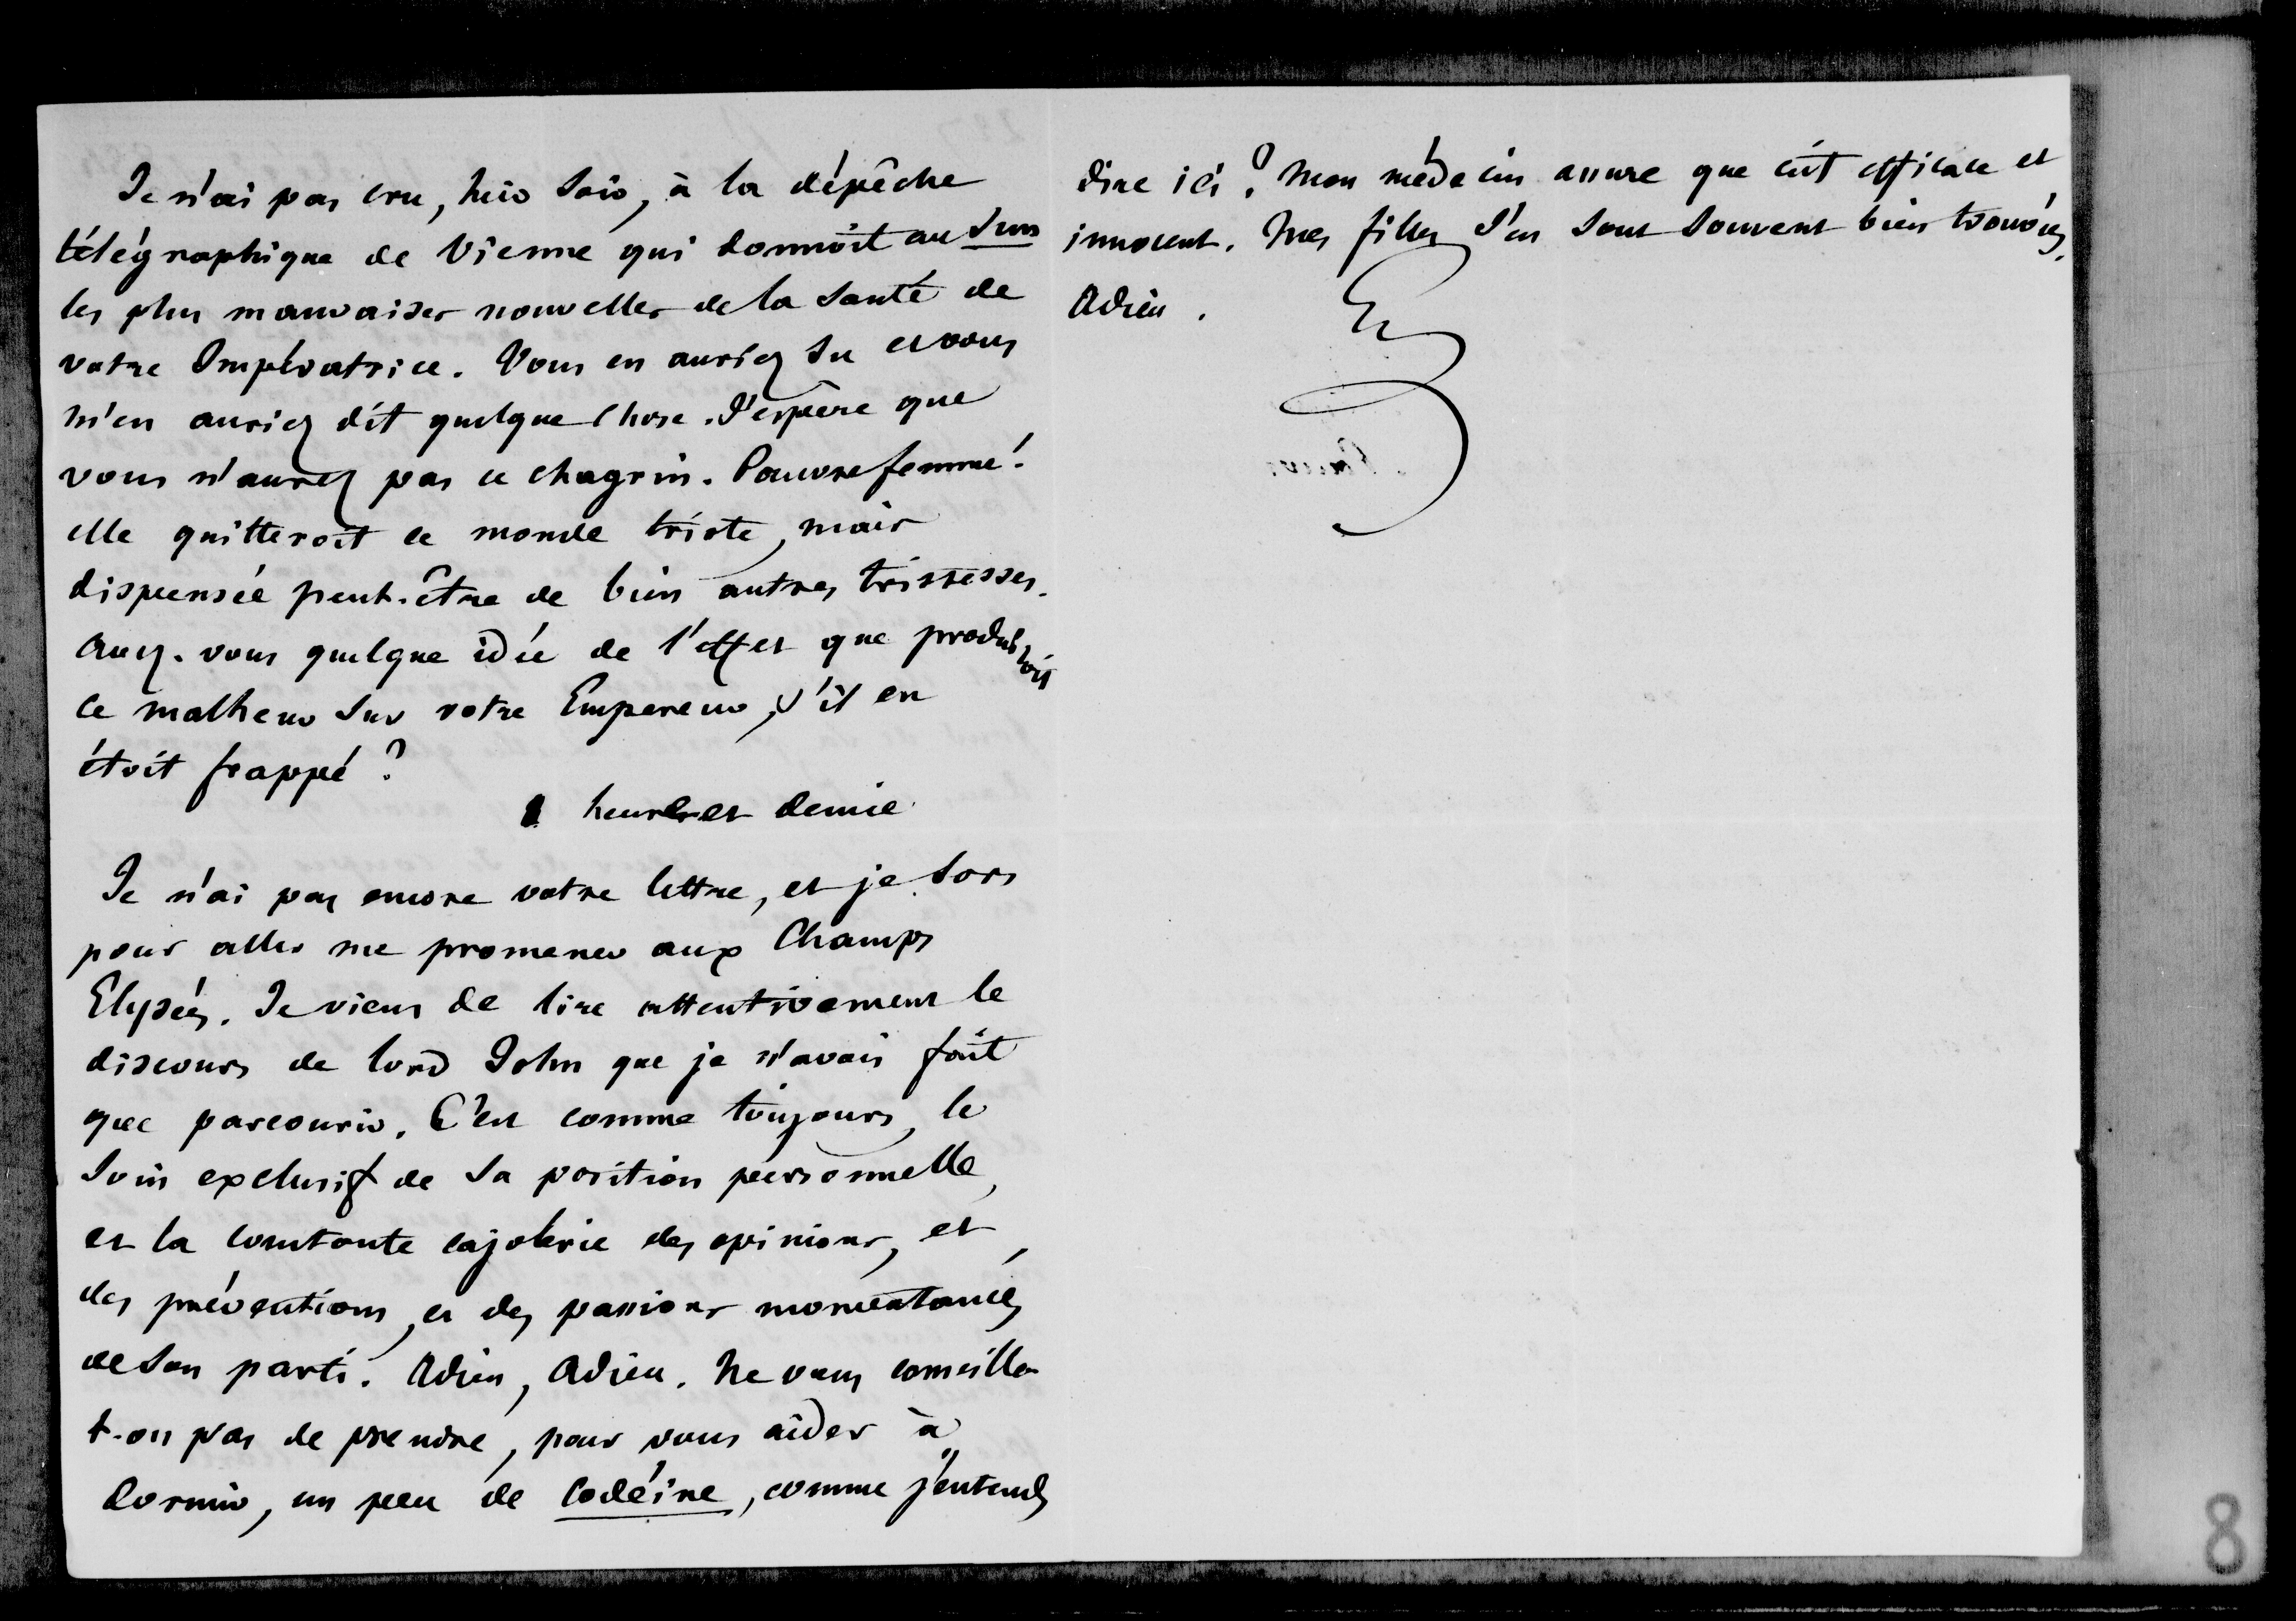 Je n'ai pas cru, hier soir, à la dépêche
télégraphique de Vienne qui donnoit au Sun
les plus mauvaises nouvelles de la santé de
votre Impératrice. Vous en auriez su et vous
m'en auriez dit quelque chose. J'espère que
vous n'aurez pas ce chagrin. Pauvre femme!
elle quitteroit ce monde triste, mais
dispensée peut-être de bien autres tristesses.
Avez-vous quelque idée de l'effet que produiroit
ce malheur sur votre Empereur, s'il en
étoit frappé?
1 heure et demie
Je n'ai pas encore votre lettre, et je sors
pour aller me promener aux Champs
Elysées. Je viens de lire attentivement le
discours de lord John que je n'avais fait
que parcourir. C'est comme toujours, le
soin exclusif de sa position personnelle,
et la constante cajolerie des opinions, et
des préventions, et des passions momentanées
de son parti. Adieu, Adieu. Ne vous conseille
t-on pas de prendre, pour vous aider à
dormir, un peu de codéine, comme j'entends
dire ici? Mon médecin assure que c'est efficace et
innocent. Mes filles s'en sont souvent bien trouvées.
Adieu.
8